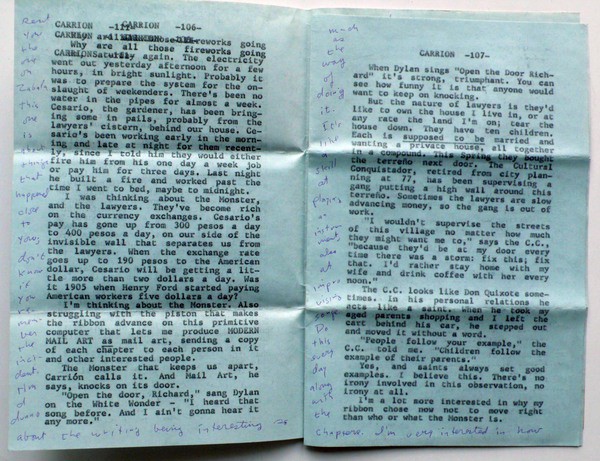 CARRION -106-
Why are all those fireworks going
CARRION Saturday again. The electricity
went out yesterday afternoon for a few
hours, in bright sunlight. Probably it
was to prepare the system for the on-
slaught of weekenders. There's been no
water in the pipes for almost a week.
Cesario, the gardener, has been bring-
ing some in pails, probably from the
lawyers' cistern, behind our house. Ce-
sario's been working early in the morn-
ing and late at night for them recent-
ly, since I told him they would either
fire him from his one day a week job
or pay him for three days. Last night
he built a fire and worked past the
time I went to bed, maybe to midnight.
I was thinking about the Monster,
and the lawyers. They've become rich
on the currency exchanges. Cesario's
pay has gone up from 300 pesos a day
to 400 pesos a day, on our side of the
invisible wall that separates us from
the lawyers. When the exchange rate
goes up to 190 pesos to the American
dollar, Cesario will be getting a lit-
tle more than two dollars a day. Was
it 1905 when Henry Ford started paying
American workers five dollars a day?
I'm thinking about the Monster. Also
struggling with the piston that makes
the ribbon advance on this primitive
computer that lets me produce MODERN
MAIL ART as mail art, sending a copy
of each chapter to each person in it
and other interested people.
The Monster that keeps us apart,
Carrión calls it. And Mail Art, he
says, knocks on its door.
"Open the door, Richard," sang Dylan
on the White Wonder — "I heard that
song before. And I ain't gonna hear it
any more."
about the writing being interesting
CARRION -107-
When Dylan sings "Open the Door Rich-
ard" it's strong, triumphant. You can
see how funny it is that anyone would
want to keep on knocking.
But the nature of lawyers is they'd
like to own the house I live in, or at
any rate the land I'm on; tear the
house down. They have ten children.
Each is supposed to be married and
wanting a private house, all together
in a compound. This Spring they bought
the terreño next door. The Cultural
Conquistador, retired from city plan-
ning at 77, has been supervising a
gang putting a high wall around this
terreño. Sometimes the lawyers are slow
advancing money, so the gang is out of
work.
"I wouldn't supervise the streets
of this village no matter how much
they might want me to," says the C.C.,
"because they'd be at my door every
time there was a storm: fix this; fix
that. I'd rather stay home with my
wife and drink coffee with her every
noon."
The C.C. looks like Don Quixote some-
times. In his personal relations he
is like a saint. When he took my
aged parents shopping and I left the
cart behind his car, he stepped out
and moved it without a word.
"People follow your example," the
C.C. told me. "Children follow the
example of their parents."
Yes, and saints always set good
examples. I believe this. There's no
irony involved in this observation, no
irony at all.
I'm a lot more interested in why my
ribbon chose now not to move right
than who or what the Monster is.
chapters. I'm very interested in how
much
as
the
way
of
doing
it.
still
at
playing
an
instru
ment,
also
at
Do
this
every
day
along
with
the